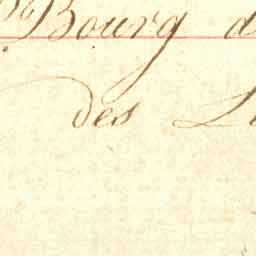 Bourg d
des